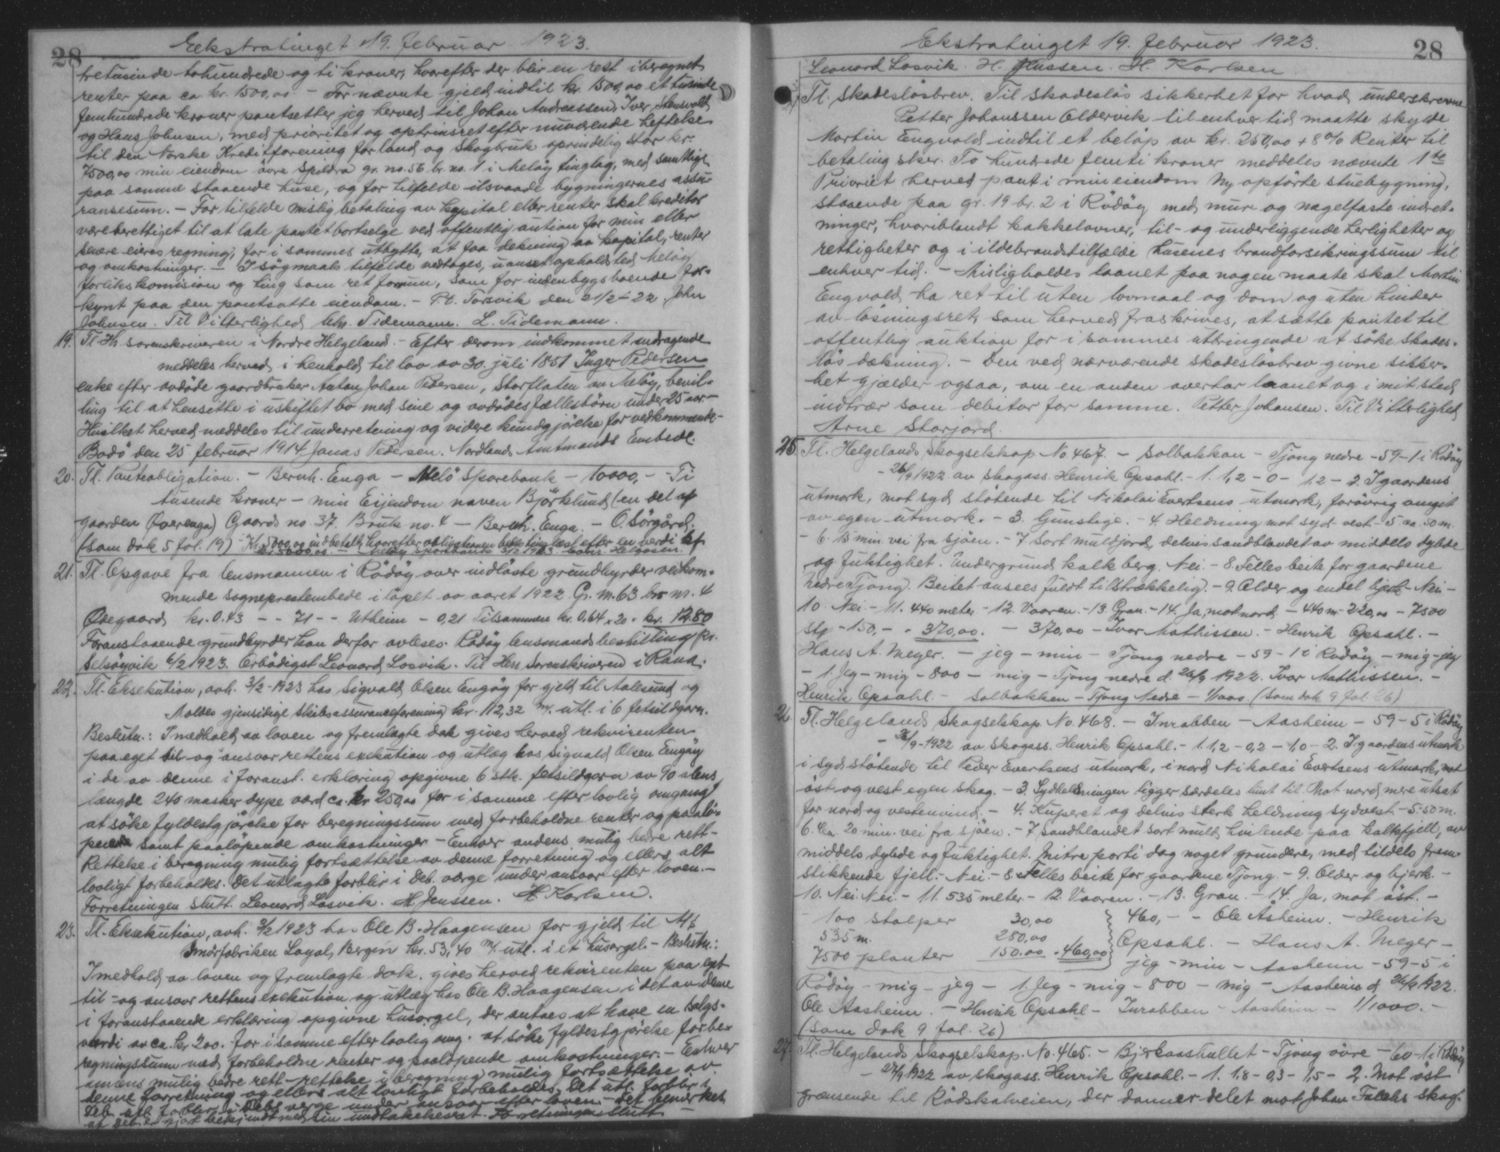 28
Ekstratinget 19. februar 1923.
tretusinde tohundrede og ti kroner, hvorefter der blir en rest iberegnet
renter paa ca kr. 1500,00 - For nævnte gjeld indtil kr. 1500,00 et tusinde
femhundrede kroner pantsætter jeg herved til Johan Andreassen, Iver
og Hans Johnsen, med prioritet og optrinsret efter nuværende heftelse
til den Norske Kreditforening for land og skogbruk oprindelig stor kr.
7500,00 min eiendom øvre Spildra gr. no. 56 br. no. 1 i Meløy tinglag, med samtlige
paa samme staaende huse, og for tilfælde ilsvaade bygningernes assu-
ransesum. - For tilfelde mislig betaling av kapital eller renter skal kreditor
være berettiget til at late pantet bortselge ved offentlig auktion for min eller
senere eiers regning, for i sammes utbytte, at faa dekning av kapital, renter
og omkostninger. - I søgmaals tilfelde vedtages, uanset opholdsted Meløy
forlikskomision og ting som ret forum, som for indenbygsboende for-
kynt paa den pantsatte eiendom. - Pt. Torsvik den 21/2-22 John
Johnsen. Til Vitterlighed Chr. Tidemann. L. Tidemann.
19. Tl. Hr. sorenskriveren i Nordre Helgeland. - Efter derom indkommet andragende
meddeles herved, i henhold til lov av 30. juli 1851 Inger Pedersen
enke efter avdøde gaardbruker Anton Johan Pedersen, Storflaten av Meløy, bevil-
ling til at hensitte i uskiftet bo med sine og avdødes fællesbørn under 25 aar-
Hvilket herved meddeles til underretning og videre kundgjørelse for vedkommende-
Bodø den 25 februar 1914 Jonas Pedersen. Nordlands Amtmands Embede.
20. Tl. Panteobligation. - Bernh. Enga - Melø Sparebank - 10000,- - Ti
tusende kroner - min Eiendom navn Bjørklund (en del af
gaarden Øverenga) Gaards no 37. Bruks no. 4 - Bernh. Enga. - O Sørgård.
(som dok 5 fol. 19) - Kr. 5000,00 indbetalt, hvorefter obligationen
21. Tl. Opgave fra lensmannen i Rødøy over indløste grundbyrder vedkom-
mende sogneprestembede i løpet av aaret 1922. G. no. 63 br no. 4
Ødegaard kr. 0.43 - - 71 - - Utheim - 0,21 Tilsammen kr. 0,64 x 20 = kr. 12.80
Foranstaaende grundbyrder kan derfor avlæses. Rødøy lensmandsbestilling pr.
Selsøyvik 6/2 1923. Ærbødigst Leonard Losvik. Til Hrr. Sorenskriveren i Rana.
22. Tl. Eksekution, avh. 3/2-1923 hos Sigvald Olsen Engøy for gjeld til Aalesund og
Moldes gjensidige skibsassuranceforening kr. 112,32 m. utl. i 6 fetsildgarn.
Beslutn.: I medhold av loven og fremlagte dok gives herved rekvirenten
paa eget til- og ansvar rettens exekution og utlæg hos Sigvald Olsen Engøy
i de av denne i foranst. erklæring opgivne 6 stk. fetsildgarn av 40 alens
længde 240 masker dype værd ca. kr 250,00 for i samme efter lovlig omgang
at søke fyldestgjørelse for beregningssum med forbeholdne renter og paalø-
pende samt paaløpende omkostninger - Enhver andens mulig bedre rett-
Rettelse i beregning mulig fortsættelse av denne forretning og ellers alt
lovligt forbeholdes. Det utlagte forblir i Deb. værge under ansvar efter loven. -
Forretningen slutt. Leonard Losvik. H Jenssen. H Karlsen.
23. Tl. Eksekution, avh. 3/2 1923 hos Ole B. Haagensen for gjeld til A/s
Smørfabriken Loyal, Bergen kr. 53,40 m/ utl. i et husorgel. - Beslutn.:
I medhold av loven og fremlagte dok. gives herved rekvirenten paa eget
til- og ansvar rettens exekution og utlæg hos Ole B. Haagensen i det av denne
i foranstaaende erklæring opgivne husorgel, der antaes at have en salgs-
værdi av ca. kr. 200.- for i samme efter lovlig omg. at søke fyldestgjørelse for be-
regningssum med forbeholdne renter og paaløpende omkostninger. - Enhver
andens mulig bedre rett - rettelse i beregning mulig fortsættelse av
denne forretning og ellers alt lovligt forbeholdes. Det utl. forblir i
Deb. værge under ansvar efter loven - Det bemerkes
Forretningen slutt -
28
Ekstratinget 19. februar 1923.
Leonard Losvik. H. Jenssen. H. Karlsen
Tl. Skadesløsbrev. Til skadesløs sikkerhet for hvad underskrevne
Petter Johanssen Oldervik til enhver tid maatte skylde
Martin Engvold indtil et beløp av kr. 250,00 + 8% Renter til
betaling skr. To hundrede femti kroner meddeles nævnte 1ste
Prioritet herved pant i min eiendom Ny opførte stuebygning,
staaende paa gr. 19 br. 2 i Rødøy med mure og nagelfaste indret-
ninger, hvoriblandt kakkelovner, til- og underliggende herligheter og
rettigheter og i ildebrandstilfælde husenes brandforsikringssum til
enhver tid. - Misligholdes laanet paa nogen maate skal Martin
Engvold ha ret til uten lovmaal og dom og uten hinder
av løsningsret, som herved fraskrives, at sætte pantet til
offentlig auktion for i sammes utbringende at søke skades-
løs dækning. - Den ved nærværende skadesløsbrev givne sikker-
het gjælder ogsaa, om en anden overtar laanet og i mit sted
indtrær som debitor for samme. Petter Johansen. Til Vitterlighed
Arne Storjord.
25. Tl. Helgeland Skogselskap No. 467. - Solbakken - Tjong nedre - 59-1 i Rødøy
- 26/9 1922 av skogass. Henrik Opsahl. - 1. 1,2 - 0 - 1,2 - 2. I gaardens
utmark, mot syd støtende til Nikolai Evertsens utmark, forøvrig omgit
av egen utmark. - 3. Gunstige. - 4. Heldning mot syd vest - 5 50 m.
- 6. 15 min vei fra sjøen. - 7. Sort muldjord, delvis sandblandet av middels dybde
og fuktighet. Undergrund kalkberg. Nei - 8 Felles beite for gaardene
nedre Tjong. Beitet ansees fuldt tilstrækkelig. - 9. Older og endel - Nei -
10. Nei - 11. 440 meter - 12. Vaaren. - 13. Gran. - 14. Ja, mot nord. - 440 m. 220,00 - 7500
stp - 150,- - 370,00. - 370,00 - Ivar Mathissen. - Henrik Opsahl. -
Hans A. Meyer. - jeg - min - Tjong nedre - 59-1 i Rødøy - mig - jeg
- 1. Jeg - mig - 800 - mig - Tjong nedre d. 26/9 1922. Ivar Mathissen. -
Henrik Opsahl. - Solbakken - Tjong Nedre - 1/1000 (Som dok 9 fol. 26)
26. Tl. Helgeland Skogselskap No. 468. - Inrabben - Aasheim - 59-5 i Rødøy
- 26/9-1922 av skogass. Henrik Opsahl. - 1. 1,2 - 0,2 - 1,0 - 2. I gaardens utmark
i syd støtende til Peder Evertsens utmark, i nord Nikolai Evertsens utmark, mot
øst og vest egen skog. - 3. Sydhellningen ligger særdeles lunt til. Mot nord mere utsat
for nord og vestenvind. - 4. Kuperet og delvis sterk heldning sydvest - 5. 50 m.
6. Ca. 20 min. vei fra sjøen. - 7. Sandblandet sort muld, hvilende paa kalkfjell, av
middels dybde og fuktighet. Indre parti dog noget grundere, med tildels frem-
stikkende fjell. - Nei. - 8. Felles beite for gaardene Tjong - 9. Older og bjerk. -
10. Nei. Nei. - 11. 535 meter - 12. Vaaren. - 13. Gran. - 14. Ja, mot øst. -
- 100 stolper 30,00 460,- - Ole Åsheim. - Henrik
535 m. 280,00 Opsahl. - Hans A. Meyer -
7500 planter 150.00 = 460,00 jeg - min - Aasheim - 59-5 i
Rødøy - mig - jeg - 1. Jeg - mig - 800 - mig - Aasheim d. 26/9 1922.
Ole Aasheim. - Henrik Opsahl - Inrabben - Aasheim - 1/1000. -
(Som dok 9 fol. 26)
27. Tl. Helgelands Skogselskap. No. 465. - Bjørkåshullet - Tjong øvre - 60-1 i Rødøy
- 27/9 1922 av skogass. Henrik Opsahl. - 1. 1,8 - 0,3 - 1,5 - 2. Mot øst
grænsende til Rødskalveien, der danner delet mot Johan Falchs skog.